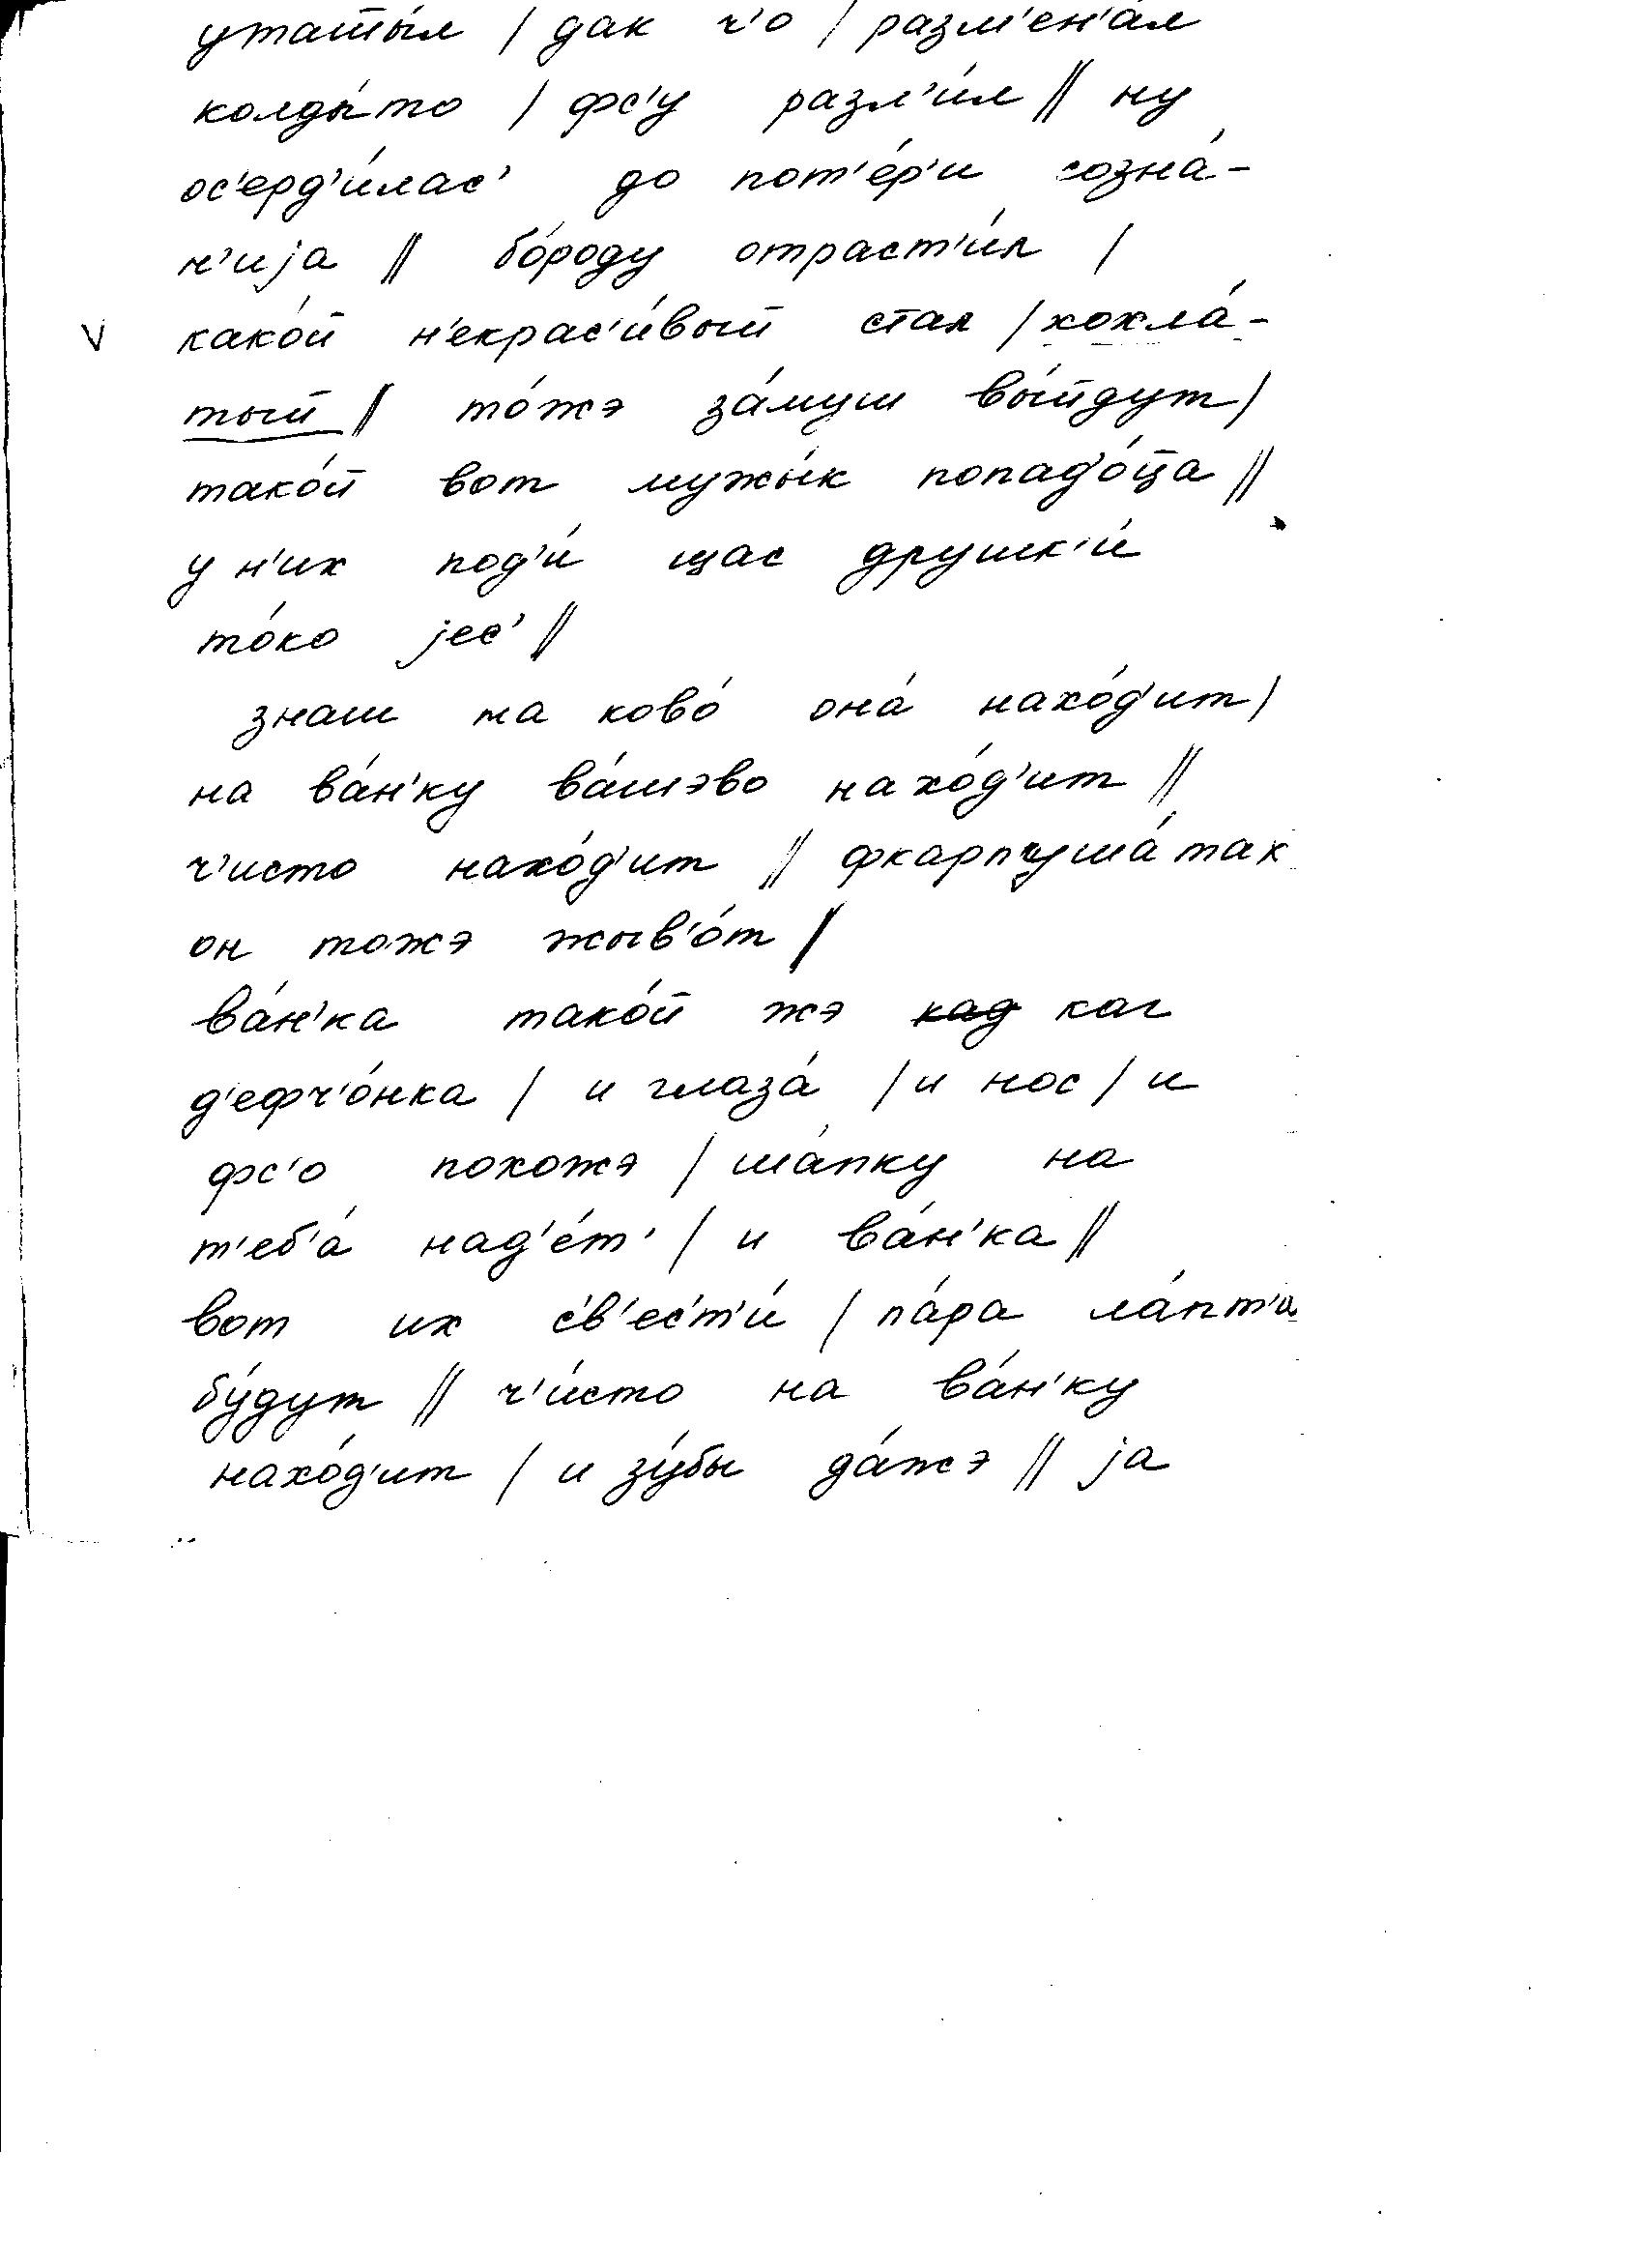 утаты́л / дак ч'о / разм'ен'а́л
колды́то / фс'у разл'и́л // ну
ос'ерд'и́лас' до пот'е́р'и созна́-
н'ија // бо́роду отраст'и́л /
V како́й н'екрас'и́вый стал / хохла́-
тый // то́жэ за́муш вы́йдут /
тако́й вот мужы́к попадо́ца //
у н'их под'и́ щас друшк'и́
то́ко јес' //
знаш на ково́ она́ нахо́д'ит /
на ва́н'ку ва́шэво нахо́д'ит //
ч'исто нахо́д'ит // фкарпуша́так
он тожэ жыв'о́т /
ва́н'ка тако́й жэ кад каг
д'ефч'о́нка / и глаза́ / и нос / и
фс'о похожэ / ша́пку на
т'еб'а́ над'е́т' / и ва́н'ка //
вот их с'в'ес'т'и́ / па́ра ла́пт'и
бу́дут // ч'и́сто на ва́н'ку
нахо́д'ит / и зу́бы да́жэ // ја